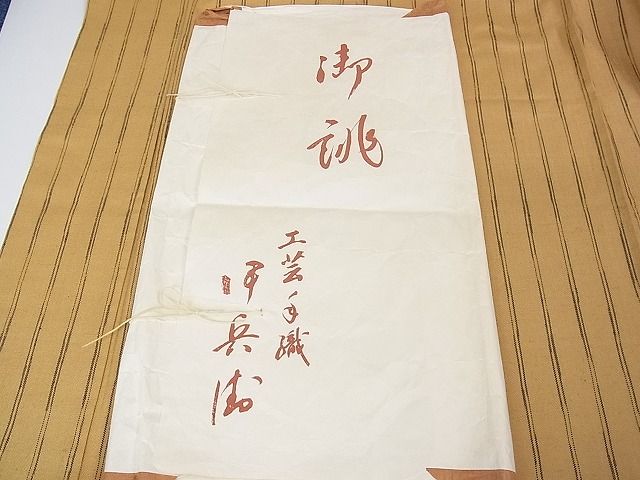 御誂
工芸手織
甲兵衛